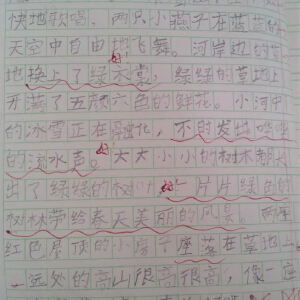 快地歌唱、两只小燕子在蓝蓝的
天空中自由 飞舞。河岸边的草
地换上了绿衣裳,绿绿的草地上
开满了五颜六色的鲜花。小河中
的冰雪正在融化,不的发出哗哗
的流水声。大大小小的树木都长
出了绿绿的树叶 一片片绿色的
树林 给春天美丽的风景。两座
红色屋顶的小房子座落在草地上
远处的高山很高很高,像一座